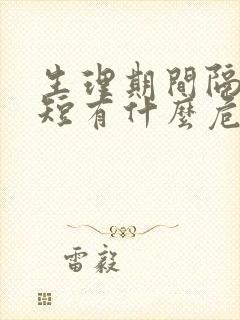 生理期間隔
短有什麼危
雷毅